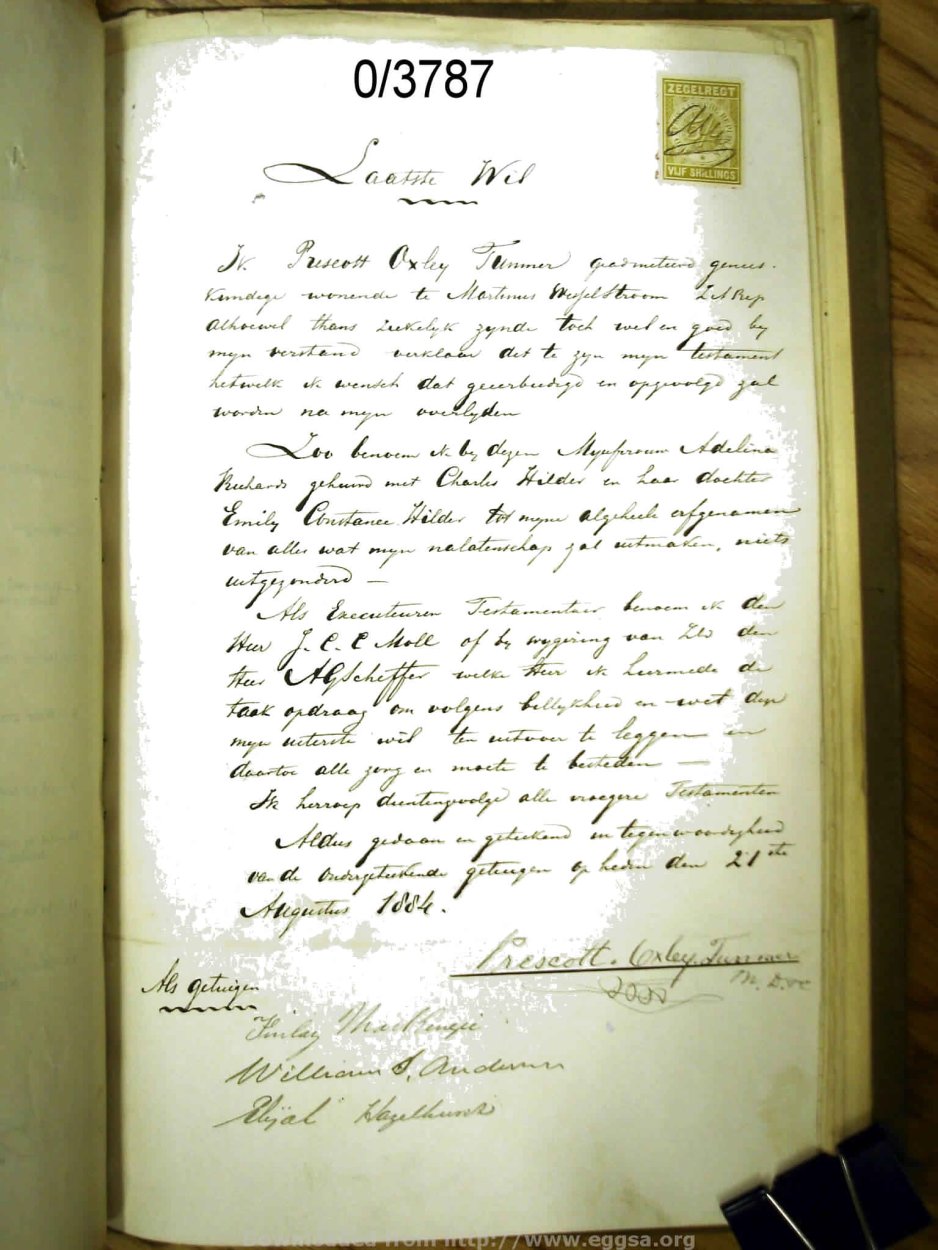 0/3787
ZEGELREGT
VIJF SHILLINGS
Laatste Wil
Ik Prescott Oxley Tunmer geadmitteerd genees-
kundige wonende te Martinus Wesselstroom Z A Rep
alhoewel thans ziekelyk zynde toch wel en goed by
myn verstand verklaar dit te zyn myn testament
hetwelk ik wensch dat geeerbiedigd en opgevolgd zal
worden na myn overlyden
Zoo benoem ik by dezen Mejufvrouw Adelina
Richards gehuwd met Charles Hilder en haar dochter
Emily Constance Hilder tot myne algeheele erfgenamen
van alles wat myn nalatenschap zal uitmaken, niets
uitgezonderd —
Als Executeuren Testamentair benoem ik den
Heer J. C. C Moll of by wygering van Zed den
Heer A G Scheffer welke Heer ik hiermede de
taak opdraag om volgens billykheid en wet deze
myn uiterste wil ten uitvoer te leggen en
daartoe alle zorg en moeite te besteden —
Ik herroep dientengevolge alle vroegere Testamenten
Aldus gedaan en geteekend in tegenwoordigheid
van de ondergeteekende getuigen op heden den 21ste
Augustus 1884.
Prescott. Oxley Tunmer
M. D.
Als getuigen
Finlay MacKenzie
William S. Anderson
Elijah Hazelhurst
Downloaded from http://www.eggsa.org